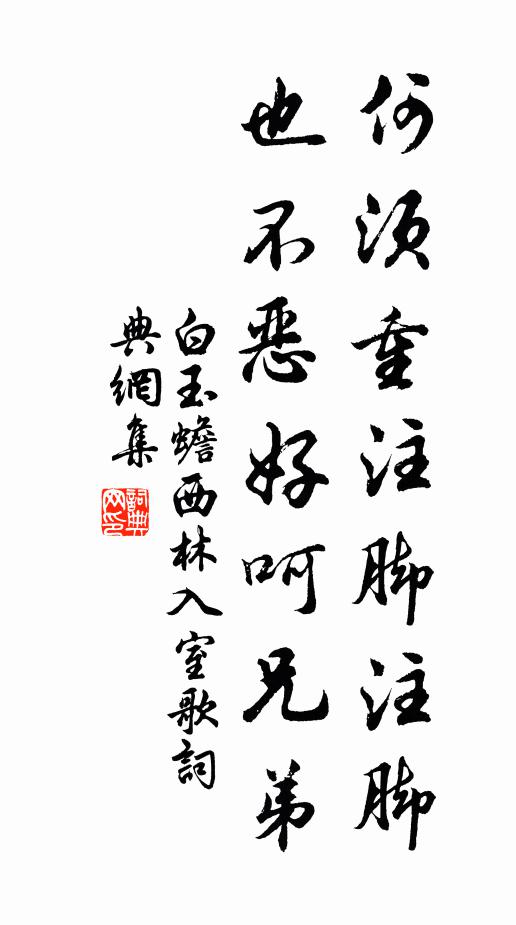 何须重注脚注脚
也不恶好呵兄弟
白玉蟾西林入室歌詞
典網集
詞典网印